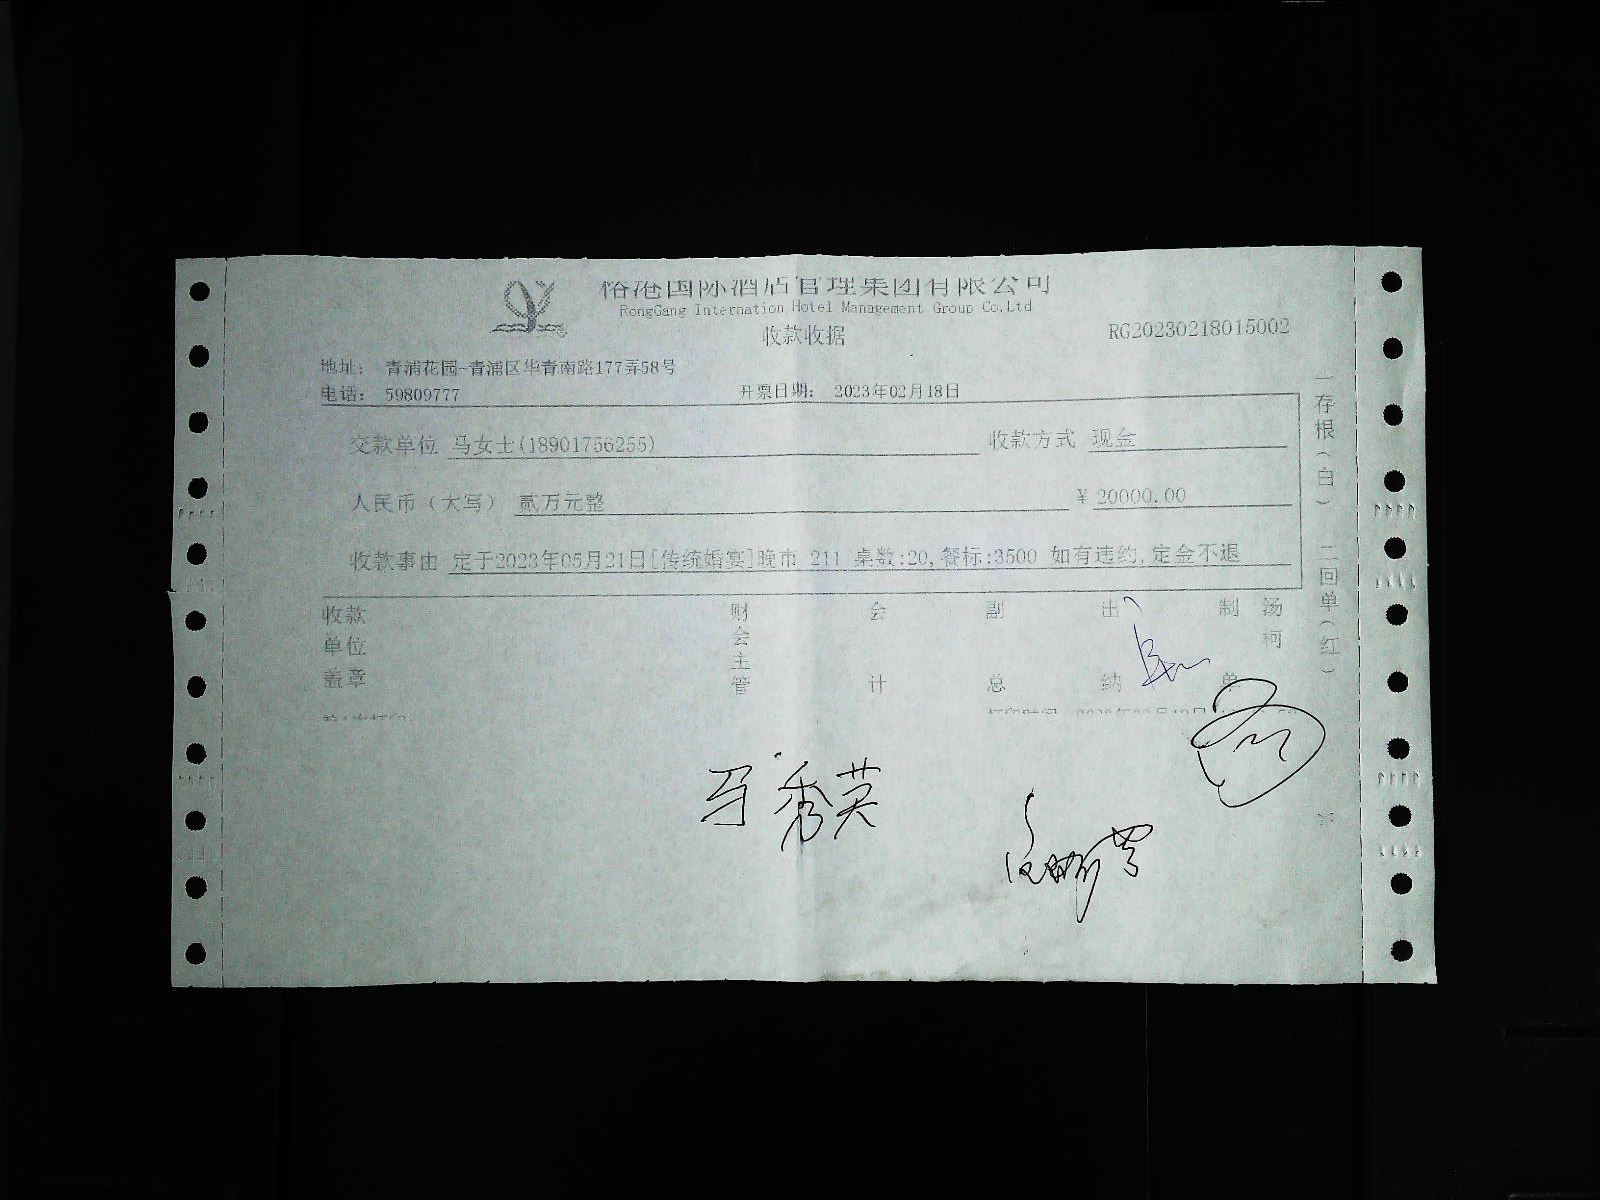 裕港国际酒店管理集团有限公司
RongGang Internation Hotel Management Group Co,Ltd
收款收据
RG20230218015002
地址： 青浦花园-青浦区华青南路177弄58号
电话： 59809777 开票日期： 2023年02月18日
交款单位 马女士(18901756255) 收款方式 现金
人民币（大写） 贰万元整 ￥ 20000.00
收款事由 定于2023年05月21日[传统婚宴]晚市 211 桌数:20,餐标:3500 如有违约,定金不退
收款单位盖章 财会主管 会计 副总 出纳 制单 汤柯
一存根（白） 二回单（红）
打印时间
马秀英